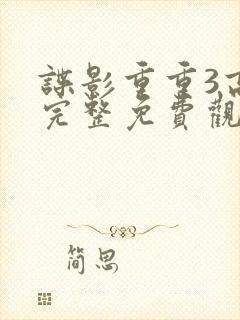 諜影重重3高
完整免費觀
简思